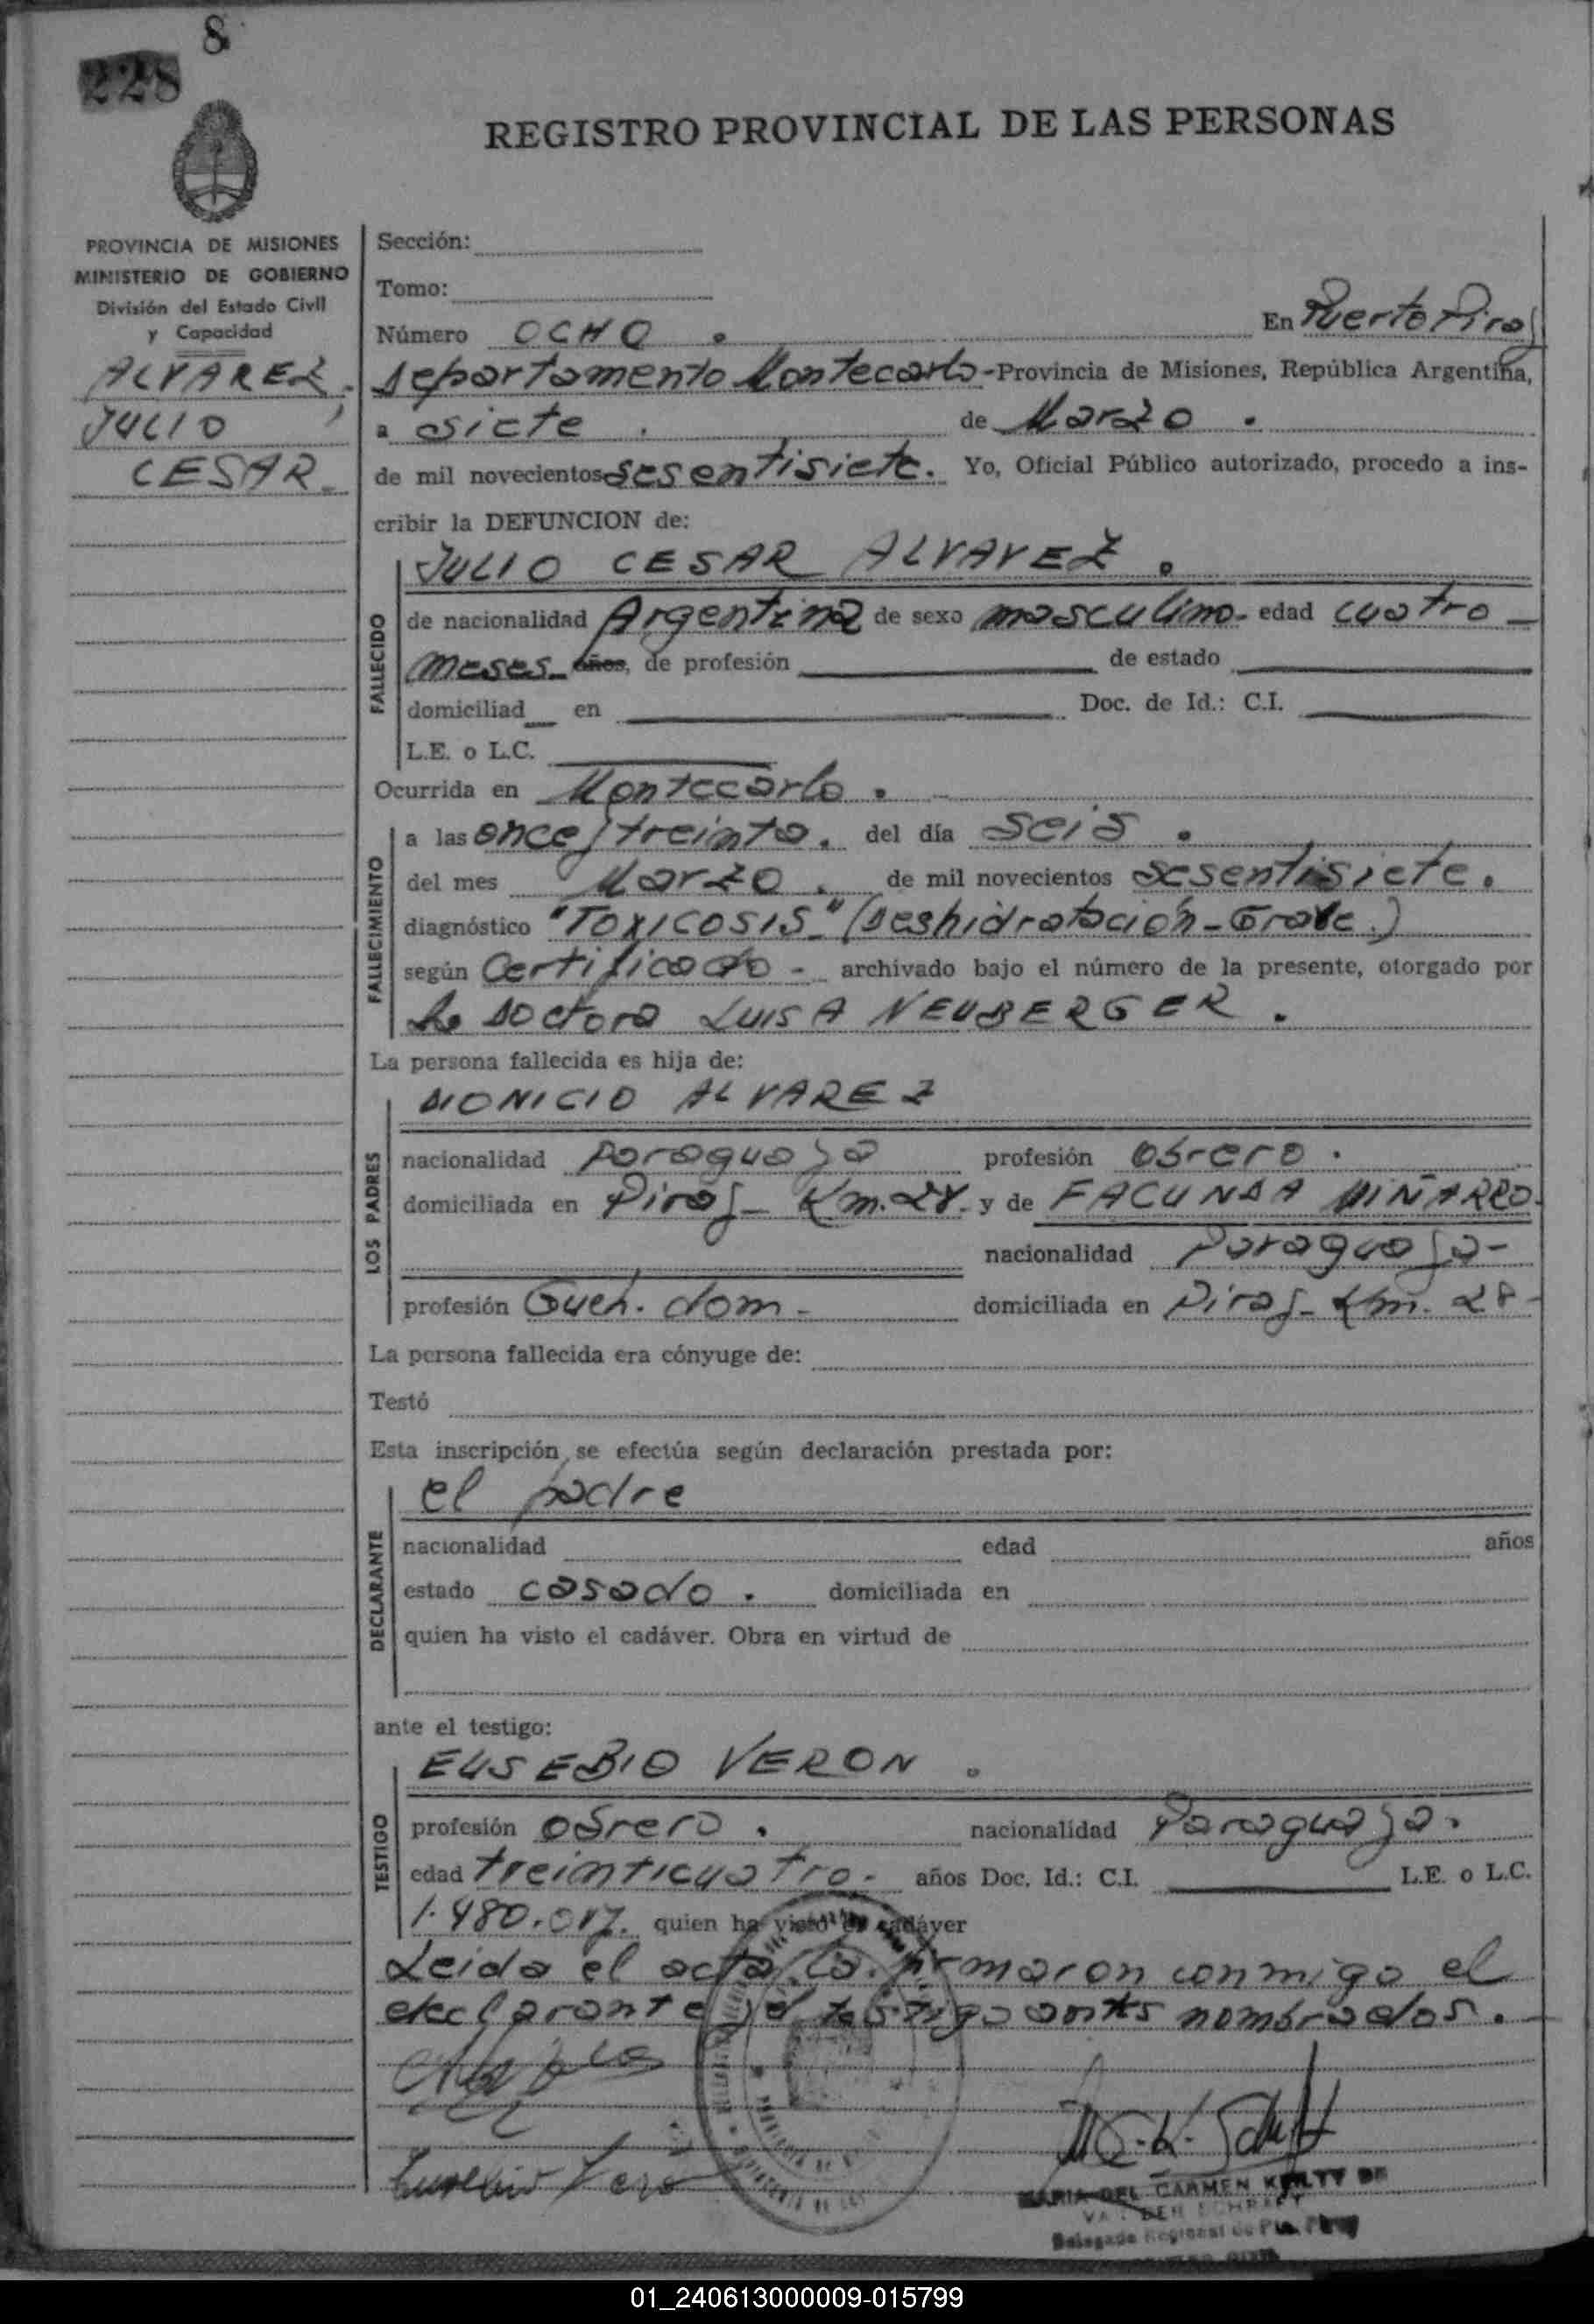 8
228
REGISTRO PROVINCIAL DE LAS PERSONAS
PROVINCIA DE MISIONES
MINISTERIO DE GOBIERNO
División del Estado Civil
y Capacidad
ALVAREZ,
JULIO
CESAR
Sección:
Tomo:
Número OCHO. En Puerto Piray
departamento Montecarlo - Provincia de Misiones, República Argentina,
a siete. de Marzo.
de mil novecientos sesentisiete. Yo, Oficial Público autorizado, procedo a ins-
cribir la DEFUNCION de:
JULIO CESAR ALVAREZ.
FALLECIDO
de nacionalidad Argentina de sexo masculino - edad cuatro -
meses - años, de profesión de estado
domiciliad en Doc. de Id.: C.I.
L.E. o L.C.
Ocurrida en Montecarlo.
FALLECIMIENTO
a las once y treinta. del día seis.
del mes Marzo. de mil novecientos sesentisiete.
diagnóstico "TOXICOSIS" (Deshidratación - Grave.)
según Certificado - archivado bajo el número de la presente, otorgado por
La Doctora LUISA NEUBERGER.
La persona fallecida es hija de:
LOS PADRES
DIONICIO ALVAREZ
nacionalidad Paraguaya profesión Obrero.
domiciliada en Piray - Km. 28. y de FACUNDA MIÑARRO.
nacionalidad Paraguaya -
profesión Queh. dom. - domiciliada en Piray - Km. 28 -
La persona fallecida era cónyuge de:
Testó
Esta inscripción se efectúa según declaración prestada por:
DECLARANTE
el padre
nacionalidad edad años
estado casado. domiciliada en
quien ha visto el cadáver. Obra en virtud de
ante el testigo:
TESTIGO
EUSEBIO VERON.
profesión obrero. nacionalidad Paraguaya.
edad treinticuatro - años Doc. Id.: C.I. L.E. o L.C.
1.480.017. quien ha visto el cadáver
Leida el acta, la firmaron conmigo el
declarante y el testigo antes nombrados.
Eusebio Vero
MARIA DEL CARMEN KEILTY DE
Delegada Regional de Pto. Piray
01_240613000009-015799